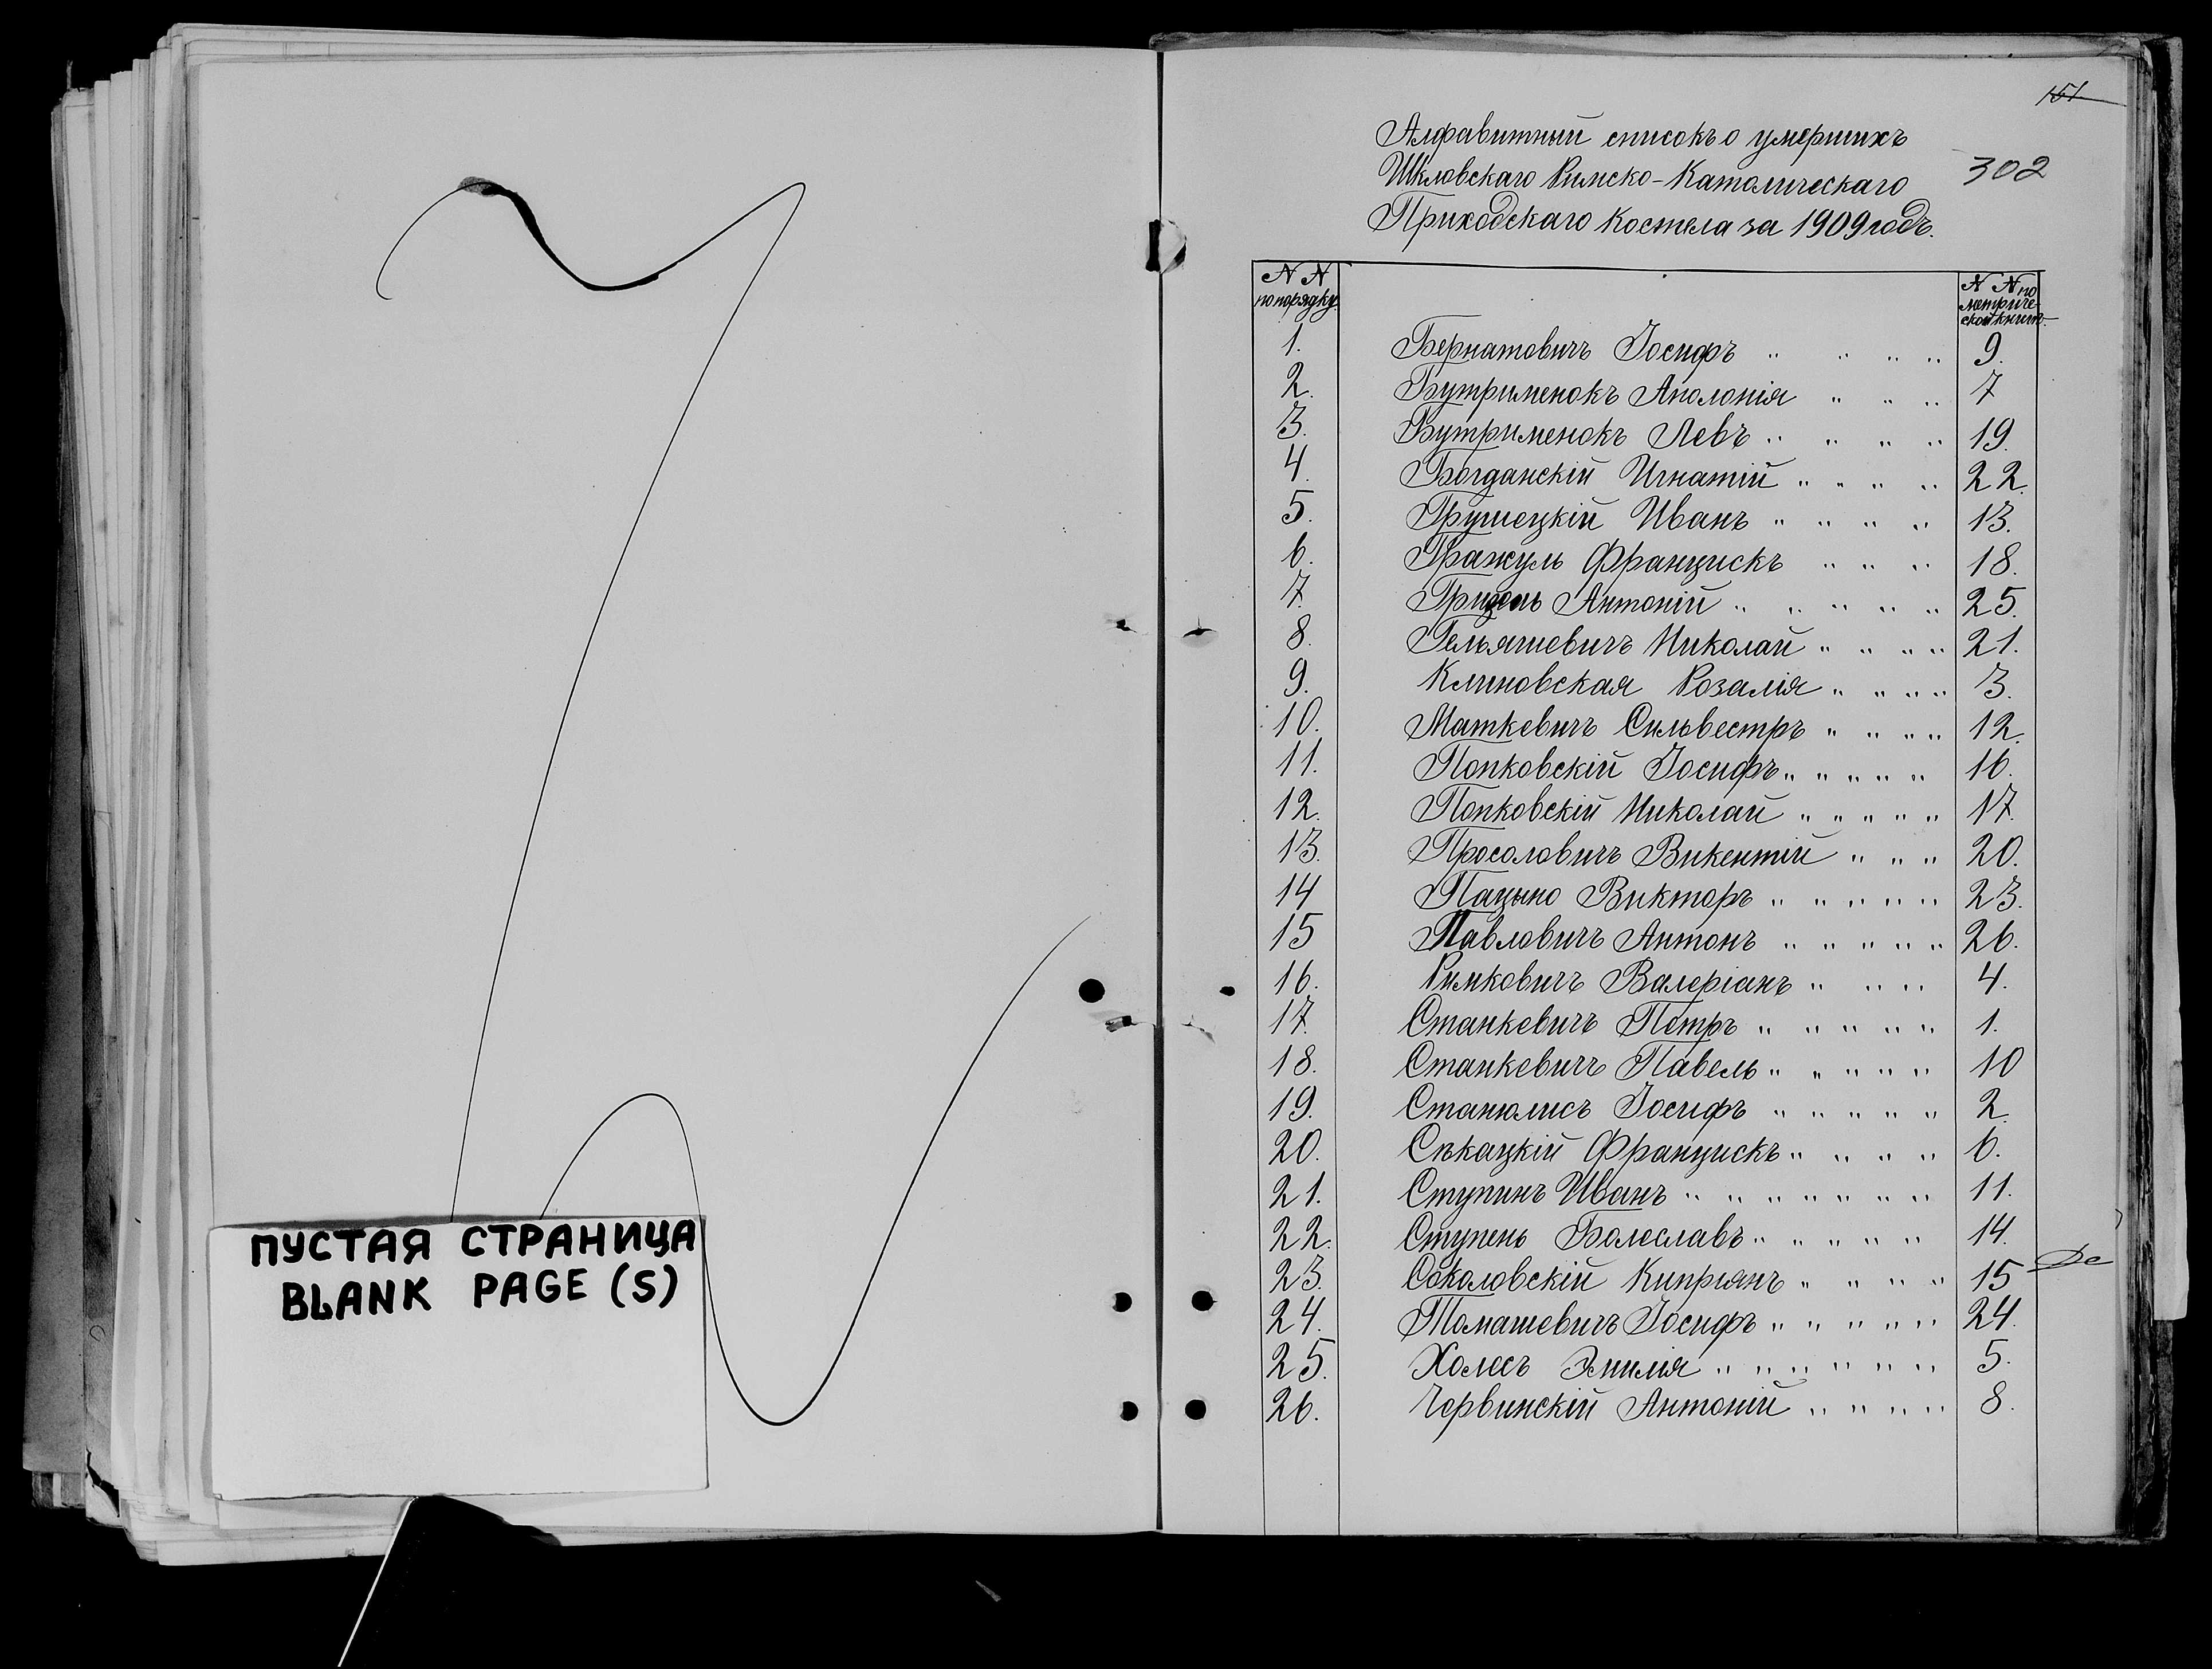 ПУСТАЯ СТРАНИЦА
BLANK PAGE (S)
151
Алфавитный списокъ о умершихъ
Шкловскаго Римско-Католическаго
302
Приходскаго Костела за 1909 годъ.
N N по порядку.
N N по метриче-
ской книгѣ.
1. Бернатовичъ Іосифъ " " " " 9.
2. Бутрименокъ Аполонія " " " 7
3. Бутрименокъ Левъ " " " " 19.
4. Богданскій Игнатій " " " " 22.
5. Грушецкій Иванъ " " " " 13.
6. Гражуль Францискъ " " " 18.
7. Антоній " " " " " 25.
8. Гельяшевичъ Николай " " " " 21.
9. Климовская Розалія " " " " 3.
10. Маткевичъ Сильвестръ " " " " 12.
11. Попковскій Іосифъ " " " " " 16.
12. Попковскій Николай " " " " " 17.
13. Просоловичъ Викентій " " " 20.
14 Пацыно Викторъ " " " " " 23.
15 Павловичъ Антонъ " " " " " 26.
16. Римковичъ Валеріанъ " " " 4.
17. Станкевичъ Петръ " " " " " 1.
18. Станкевичъ Павелъ " " " " " 10
19. Станюлисъ Іосифъ " " " " " 2.
20. Сѣкацкій Францискъ " " " " 6.
21. Ступинъ Иванъ " " " " " " " 11.
22. Ступень Болеславъ " " " " " 14.
23. Соколовскій Кипріянъ " " " " 15
24. Томашевичъ Іосифъ " " " " " 24.
25. Холесъ Эмилія " " " " " " " 5.
26. Червинскій Антоній " " " " 8.